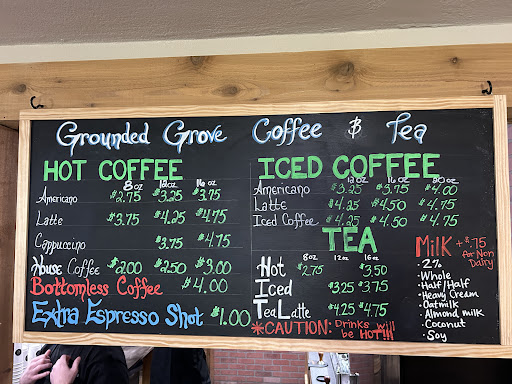 Grounded Grove Coffee & Tea
HOT COFFEE
8oz 12oz 16oz
Americano $2.75 $3.25 $3.75
Latte $3.75 $4.25 $4.75
Cappuccino $3.75 $4.75
House Coffee $2.00 $2.50 $3.00
Bottomless Coffee $4.00
Extra Espresso Shot $1.00
ICED COFFEE
12oz 16oz 20oz
Americano $3.25 $3.75 $4.00
Latte $4.25 $4.50 $4.75
Iced Coffee $4.25 $4.50 $4.75
TEA
8oz 12oz 16oz
Hot $2.75 $3.50
Iced $3.25 $3.75
Tea Latte $4.25 $4.75
*CAUTION: Drinks will
be HOT!!!
Milk + $.75
for Non
Dairy
• 2%
• Whole
• Half/Half
• Heavy Cream
• Oatmilk
• Almond milk
• Coconut
• Soy